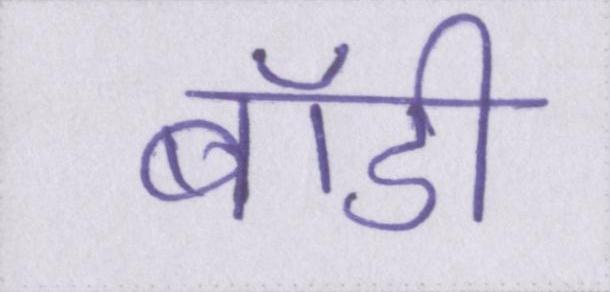 बॉडी